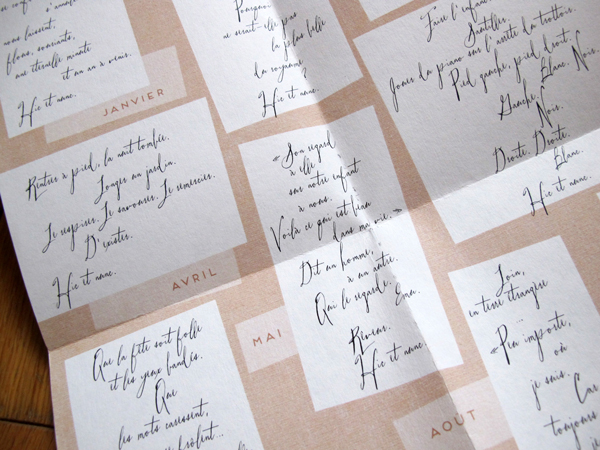 nous laissent,
fleurs, serments,
une éternelle minute
et un an à venir.
Hic et nunc.
JANVIER
Pourquoi
ne serait-elle pas
la plus belle
du royaume ?
Hic et nunc.
Faire l'enfant.
Sautiller.
Jouer du piano sur l'arrête du trottoir.
Pied gauche, pied droit.
Blanc. Noir.
Gauche.
Noir.
Droite. Droite.
Blanc.
Hic et nunc.
Rentrer à pied, la nuit tombée.
Longer un jardin.
Le respirer. Le savourer. Le remercier.
D'exister.
Hic et nunc.
AVRIL
« Son regard
à elle
sur notre enfant
à nous.
Voilà ce qui est bien
dans ma vie. »
Dit un homme,
à un autre.
Qui le regarde. Ému.
Rêveur.
Hic et nunc.
MAI
Que la fête soit folle
et les yeux bandés.
Que
les mots caressent,
frôlent...
Loin,
en terre étrangère
...
« Peu importe,
où
je suis.
Car
toujours
AOÛT